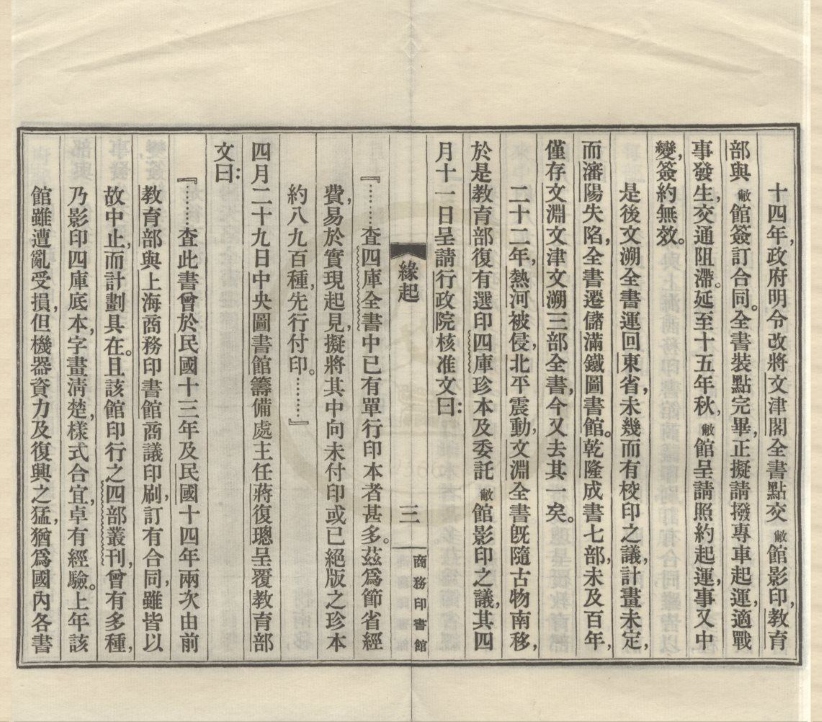 十四年，政府明令改將文津閣全書點交敝館影印，教育
部與敝館簽訂合同。全書裝點完畢，正擬請撥專車起運，適戰
事發生，交通阻滯。延至十五年秋，敝館呈請照約起運，事又中
變，簽約無效。
是後文溯全書運回東省，未幾而有校印之議，計畫未定，
而瀋陽失陷，全書遷儲滿鐵圖書館。乾隆成書七部，未及百年，
僅存文淵文津文溯三部全書，今又去其一矣。
二十二年，熱河被侵，北平震動，文淵全書旣隨古物南移，
於是教育部復有選印四庫珍本及委託敝館影印之議，其四
月十一日呈請行政院核准文曰：
緣起
三
商務印書館
『……查四庫全書中已有單行印本者甚多。茲爲節省經
費，易於實現起見，擬將其中向未付印或已絕版之珍本
約八九百種，先行付印。……』
四月二十九日中央圖書館籌備處主任蔣復璁呈覆教育部
文曰：
『……查此書曾於民國十三年及民國十四年兩次由前
教育部與上海商務印書館商議印刷，訂有合同，雖皆以
故中止，而計劃具在。且該館印行之四部叢刊，曾有多種，
乃影印四庫底本，字畫淸楚，樣式合宜，卓有經驗。上年該
館雖遭亂受損，但機器資力及復興之猛，猶爲國內各書